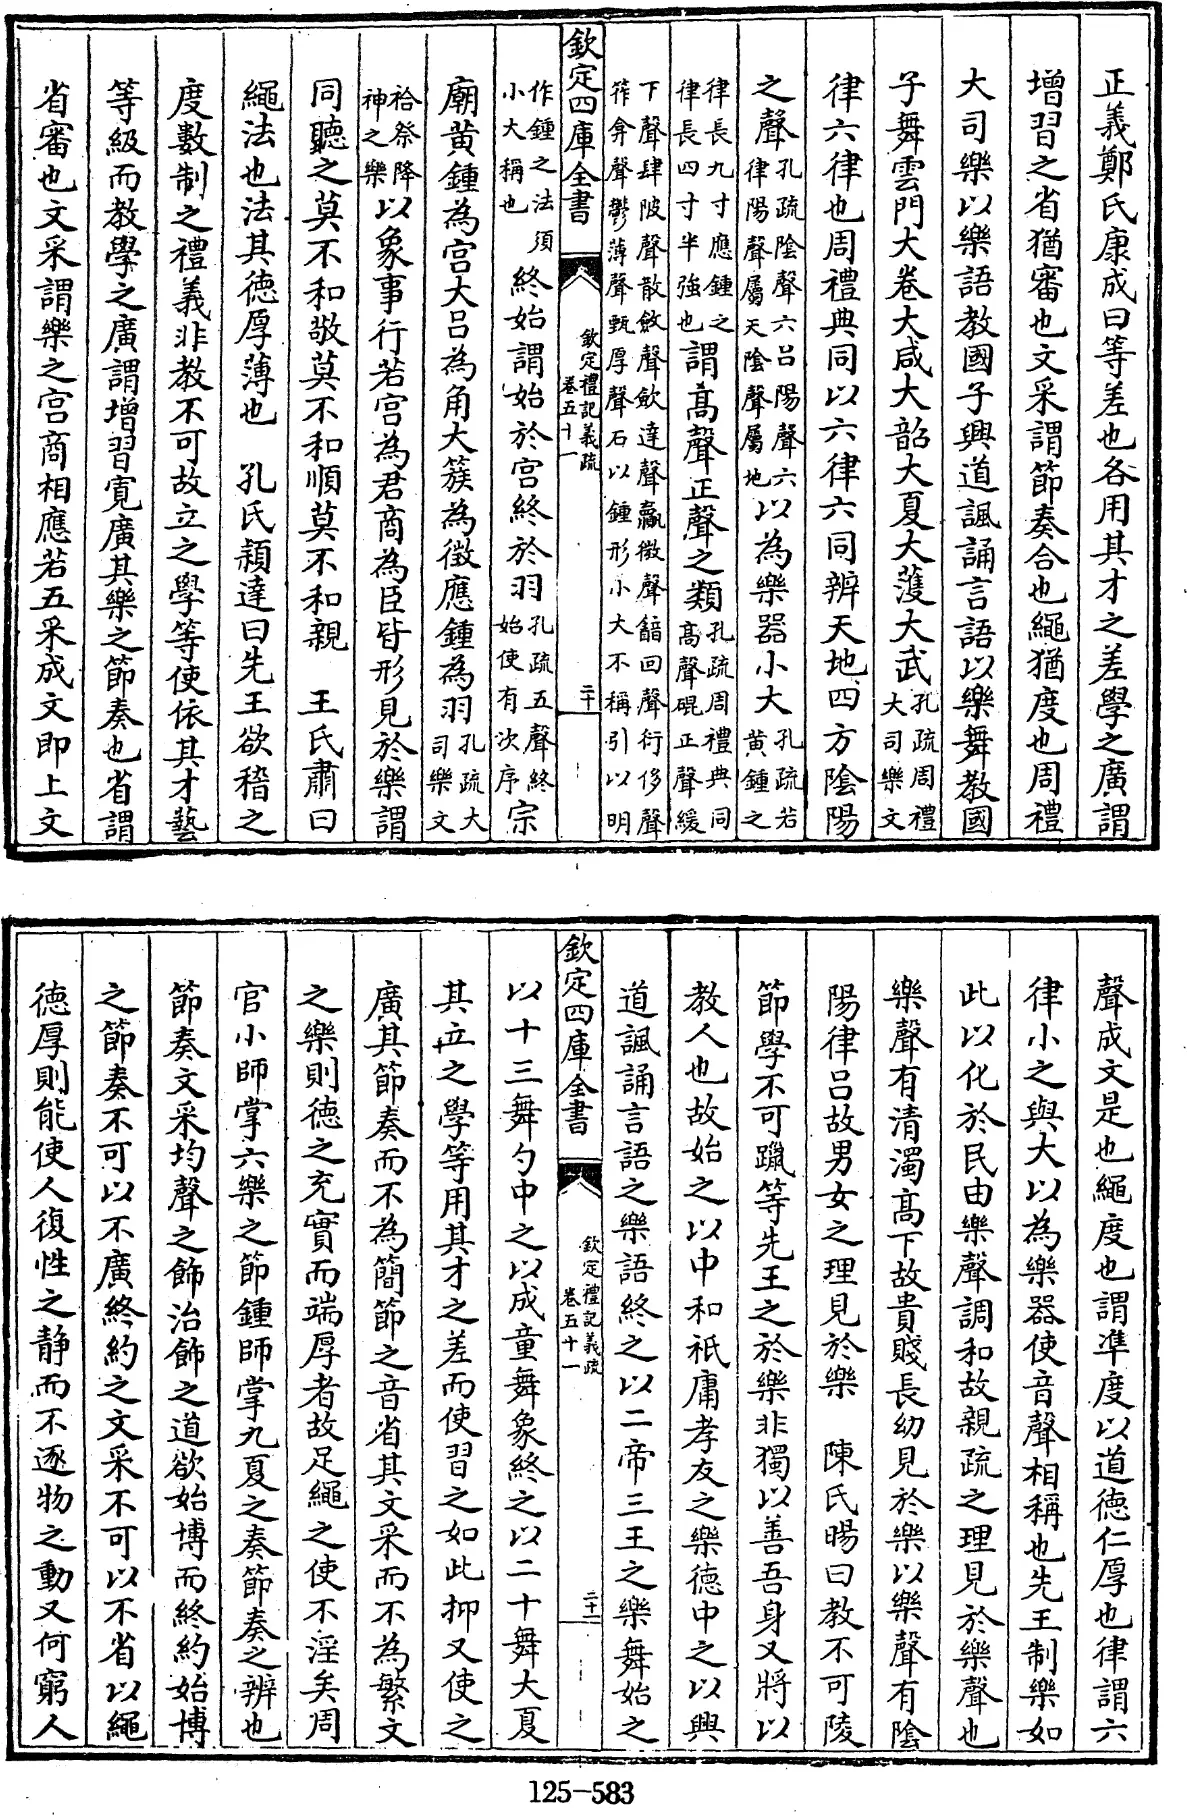 正義鄭氏康成曰等差也各用其才之差學之廣謂
增習之省猶審也文采謂節奏合也繩猶度也周禮
大司樂以樂語教國子興道諷誦言語以樂舞教國
子舞雲門大卷大咸大韶大夏大濩大武孔疏周禮大司樂文
律六律也周禮典同以六律六同辨天地四方陰陽
之聲孔疏陰聲六呂陽聲六律陽聲屬天陰聲屬地以為樂器小大孔疏若黃鍾之
律長九寸應鍾之律長四寸半強也謂高聲正聲之類孔疏周禮典同高聲硍正聲緩
下聲肆陂聲散斂聲歛達聲贏微聲韽回聲衍侈聲筰弇聲鬱薄聲甄厚聲石以鍾形小大不稱引以明
欽定四庫全書
欽定禮記義疏
卷五十一
二十
作鍾之法須小大稱也終始謂始於宮終於羽孔疏五聲終始使有次序宗
廟黃鍾為宮大呂為角大簇為徵應鍾為羽孔疏大司樂文
祫祭降神之樂以象事行若宮為君商為臣皆形見於樂謂
同聽之莫不和敬莫不和順莫不和親 王氏肅曰
繩法也法其德厚薄也 孔氏穎達曰先王欲稽之
度數制之禮義非教不可故立之學等使依其才藝
等級而教學之廣謂增習寬廣其樂之節奏也省謂
省審也文采謂樂之宮商相應若五采成文即上文
聲成文是也繩度也謂準度以道德仁厚也律謂六
律小之與大以為樂器使音聲相稱也先王制樂如
此以化於民由樂聲調和故親疏之理見於樂聲也
樂聲有清濁高下故貴賤長幼見於樂以樂聲有陰
陽律呂故男女之理見於樂 陳氏暘曰教不可陵
節學不可躐等先王之於樂非獨以善吾身又將以
教人也故始之以中和祇庸孝友之樂德中之以興
道諷誦言語之樂語終之以二帝三王之樂舞始之
欽定四庫全書
欽定禮記義疏
卷五十一
二十一
以十三舞勺中之以成童舞象終之以二十舞大夏
其立之學等用其才之差而使習之如此抑又使之
廣其節奏而不為簡節之音省其文采而不為繁文
之樂則德之充實而端厚者故足繩之使不淫矣周
官小師掌六樂之節鍾師掌九夏之奏節奏之辨也
節奏文采均聲之飾治飾之道欲始博而終約始博
之節奏不可以不廣終約之文采不可以不省以繩
德厚則能使人復性之靜而不逐物之動又何窮人
125-583